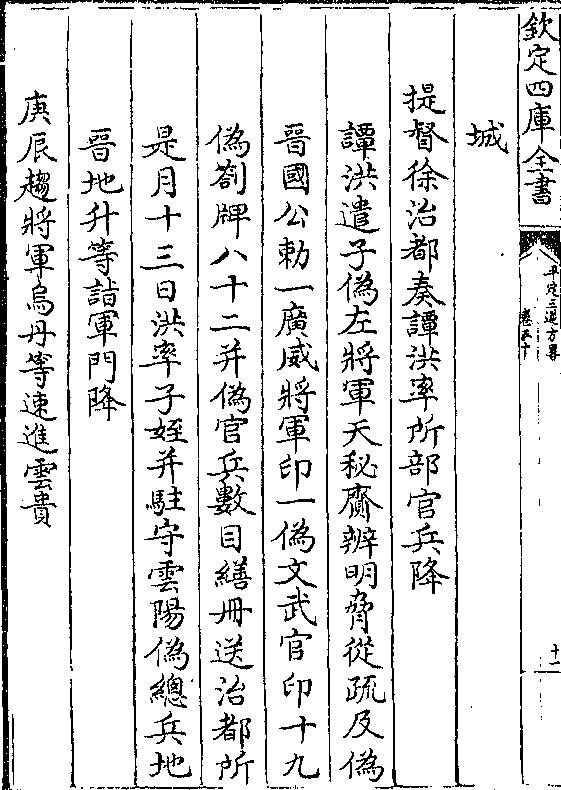 欽定四庫全書
平定三逆方畧
卷五十
十一
城
提督徐治都奏譚洪率所部官兵降
譚洪遣子偽左將軍天秘齎辨明脅從疏及偽
晉國公勅一廣威將軍印一偽文武官印十九
偽劄牌八十二并偽官兵數目繕冊送治都所
是月十三日洪率子姪并駐守雲陽偽總兵地
晉地升等詣軍門降
庚辰趨將軍烏丹等速進雲貴